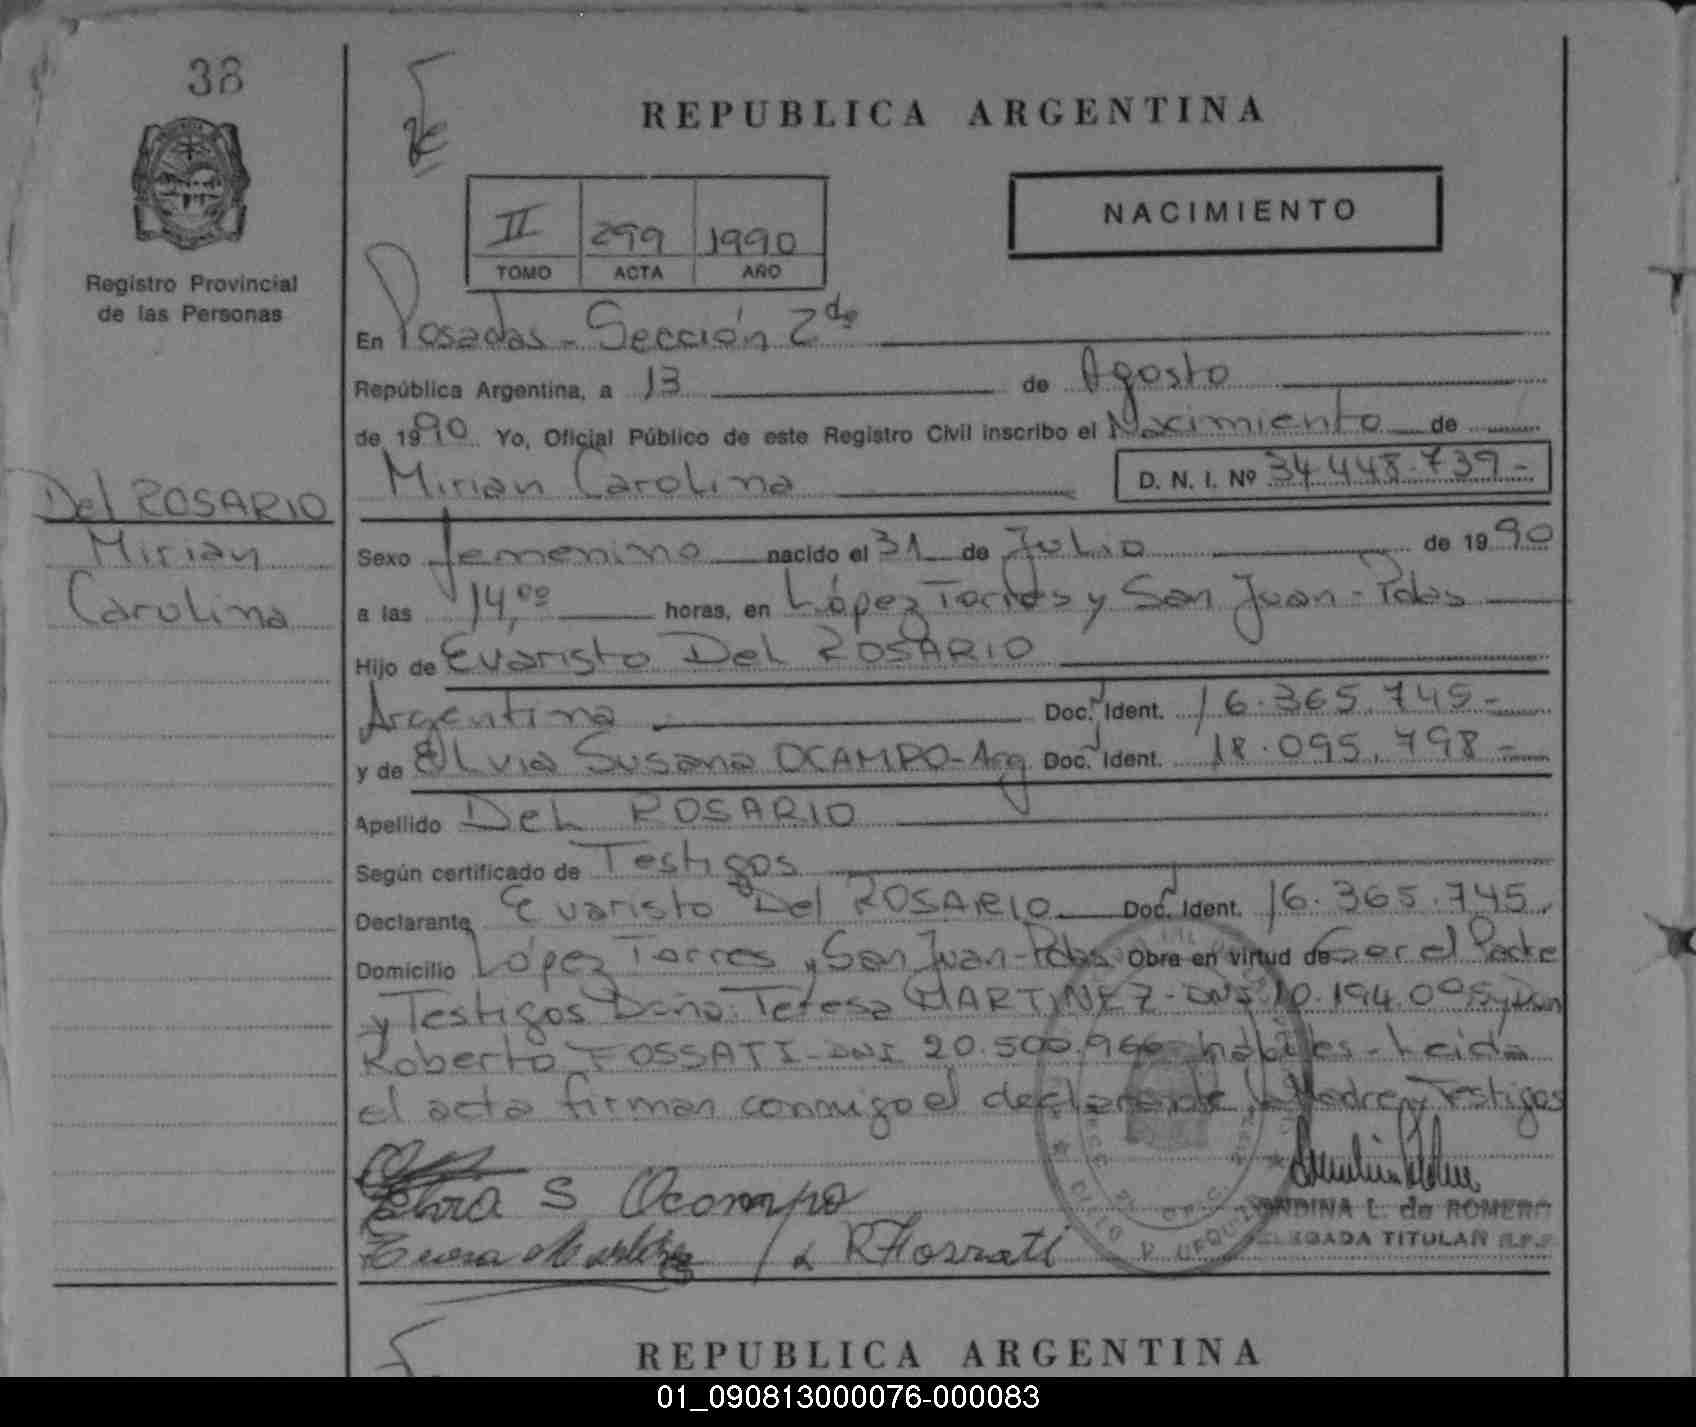 38
Registro Provincial
de las Personas
Del ROSARIO
Mirian
Carolina
REPUBLICA ARGENTINA
II 299 1990
TOMO ACTA AÑO
NACIMIENTO
En Posadas - Sección 2da
República Argentina, a 13 de Agosto
de 1990 Yo, Oficial Público de este Registro Civil inscribo el Nacimiento de
Mirian Carolina D. N. I. Nº 34.448.739-
Sexo femenino nacido el 31 de Julio de 1990
a las 14,00 horas, en López Torres y San Juan - Pdas
Hijo de Evaristo Del ROSARIO
Argentina Doc. Ident. 16.365.745-
y de Elvia Susana OCAMPO - Arg Doc. Ident. 18.095.798-
Apellido Del ROSARIO
Según certificado de Testigos
Declarante Evaristo Del ROSARIO Doc. Ident. 16.365.745
Domicilio López Torres y San Juan - Pdas Obra en virtud de Ser el Padre
y Testigos Doña: Teresa MARTINEZ - DNI 10.194.005 y Don
Roberto FOSSATI - DNI 20.500.966 hábiles - Leída
el acta firman conmigo el declarante, la Madre y Testigos
S Ocampo
R Fossati
L. de ROMERO
TITULAR
REPUBLICA ARGENTINA
01_090813000076-000083